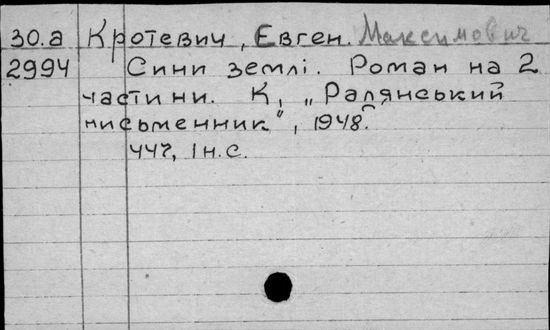 30.а Кротевич, Євген. Максимович
2994 Сини землі. Роман на 2
частини. К, „Радянський
письменник", 1948.
447, 1 н.с.